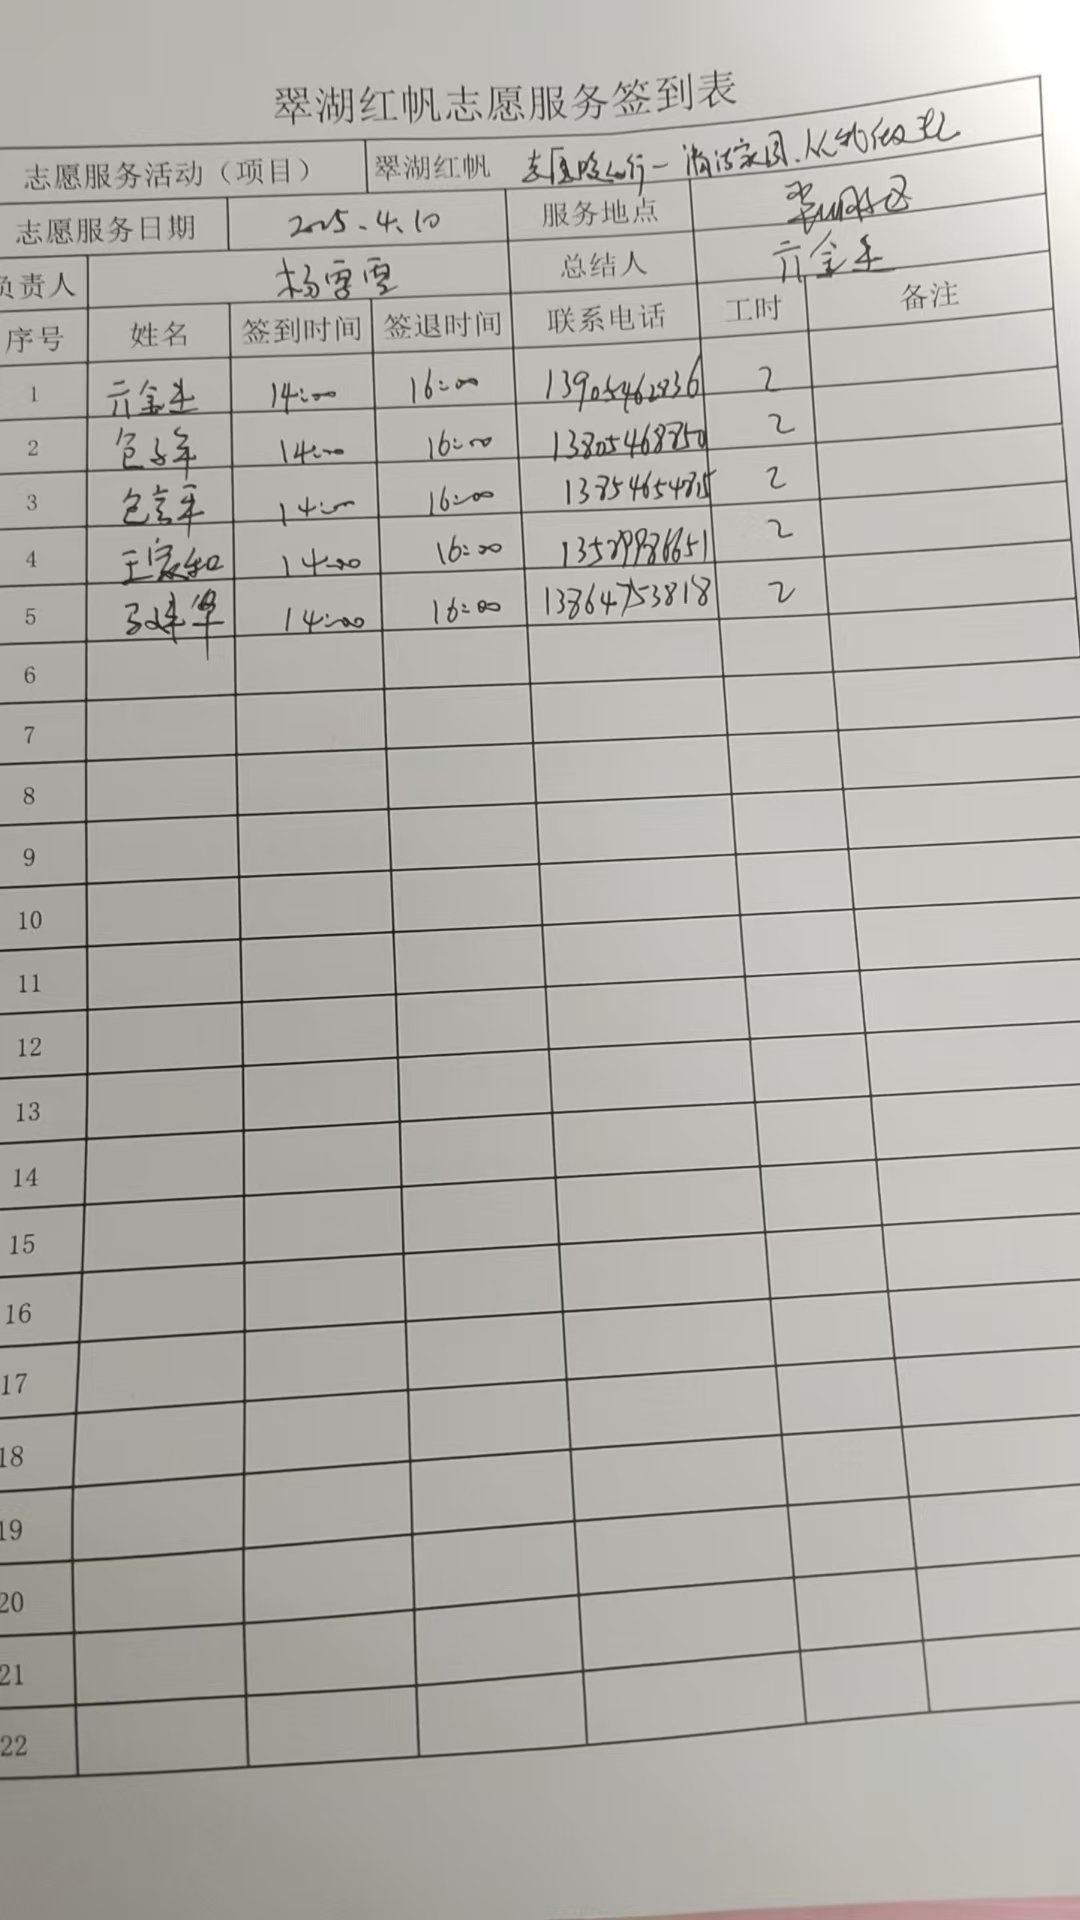 翠湖红帆志愿服务签到表
志愿服务活动（项目） 翠湖红帆 志愿 行一清洁家园.从我做起
志愿服务日期 2025.4.10 服务地点 社区
负责人 杨雪雪 总结人
序号 姓名 签到时间 签退时间 联系电话 工时 备注
1 14:00 16:00 13905462836 2
2 14:00 16:00 13805468850 2
3 14:00 16:00 2
4 王家和 14:00 16:00 2
5 14:00 16:00 13864753818 2
6
7
8
9
10
11
12
13
14
15
16
17
18
19
20
21
22